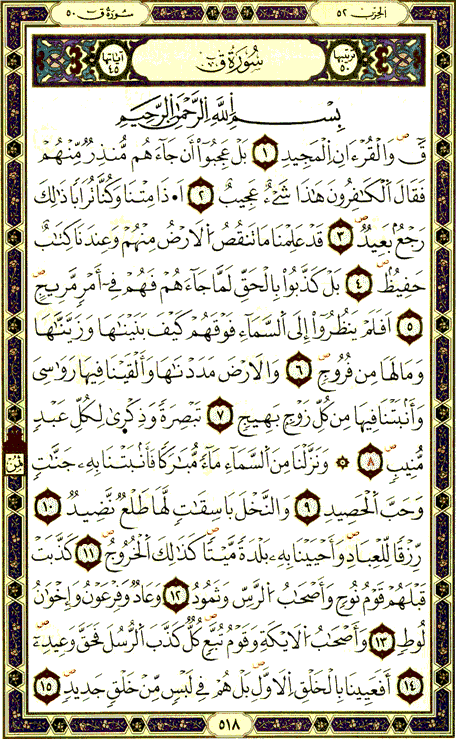 الحزب ٥٢
سورة ق ٥٠
ترتيبها ٥٠ سُورَةُ قٓ آياتها ٤٥
بِسْمِ اللَّهِ الرَّحْمَٰنِ الرَّحِيمِ
قٓ وَالْقُرْءَانِ الْمَجِيدِ ١ بَلْ عَجِبُوٓاْ أَن جَآءَهُم مُّنذِرٌ مِّنْهُمْ
فَقَالَ الْكَٰفِرُونَ هَٰذَا شَيْءٌ عَجِيبٌ ٢ أَ•ذَا مِتْنَا وَكُنَّا تُرَابًا ذَٰلِكَ
رَجْعُۢ بَعِيدٌ ٣ قَدْ عَلِمْنَا مَا تَنقُصُ الَارْضُ مِنْهُمْ وَعِندَنَا كِتَٰبٌ
حَفِيظٌ ٤ بَلْ كَذَّبُواْ بِالْحَقِّ لَمَّا جَآءَهُمْ فَهُمْ فِےٓ أَمْرٖ مَّرِيجٍ
٥ اَفَلَمْ يَنظُرُوٓاْ إِلَى السَّمَآءِ فَوْقَهُمْ كَيْفَ بَنَيْنَٰهَا وَزَيَّنَّٰهَا
وَمَا لَهَا مِن فُرُوجٖ ٦ وَالَارْضَ مَدَدْنَٰهَا وَأَلْقَيْنَا فِيهَا رَوَٰسِيَ
وَأَنۢبَتْنَا فِيهَا مِن كُلِّ زَوْجِۢ بَهِيجٖ ٧ تَبْصِرَةً وَذِكْرَىٰ لِكُلِّ عَبْدٖ
مُّنِيبٖ ٨ ۞ وَنَزَّلْنَا مِنَ السَّمَآءِ مَآءً مُّبَٰرَكًا فَأَنۢبَتْنَا بِهِۦ جَنَّٰتٖ
ثمن
وَحَبَّ الْحَصِيدِ ٩ وَالنَّخْلَ بَاسِقَٰتٖ لَّهَا طَلْعٌ نَّضِيدٌ ١٠
رِّزْقًا لِّلْعِبَادِ وَأَحْيَيْنَا بِهِۦ بَلْدَةً مَّيْتًا كَذَٰلِكَ الْخُرُوجُ ١١ كَذَّبَتْ
قَبْلَهُمْ قَوْمُ نُوحٖ وَأَصْحَٰبُ الرَّسِّ وَثَمُودُ ١٢ وَعَادٌ وَفِرْعَوْنُ وَإِخْوَٰنُ
لُوطٖ ١٣ وَأَصْحَٰبُ الَايْكَةِ وَقَوْمُ تُبَّعٖ كُلٌّ كَذَّبَ الرُّسُلَ فَحَقَّ وَعِيدِۦٓ
١٤ أَفَعَيِينَا بِالْخَلْقِ الَاوَّلِ بَلْ هُمْ فِي لَبْسٖ مِّنْ خَلْقٖ جَدِيدٖ ١٥
٥١٨